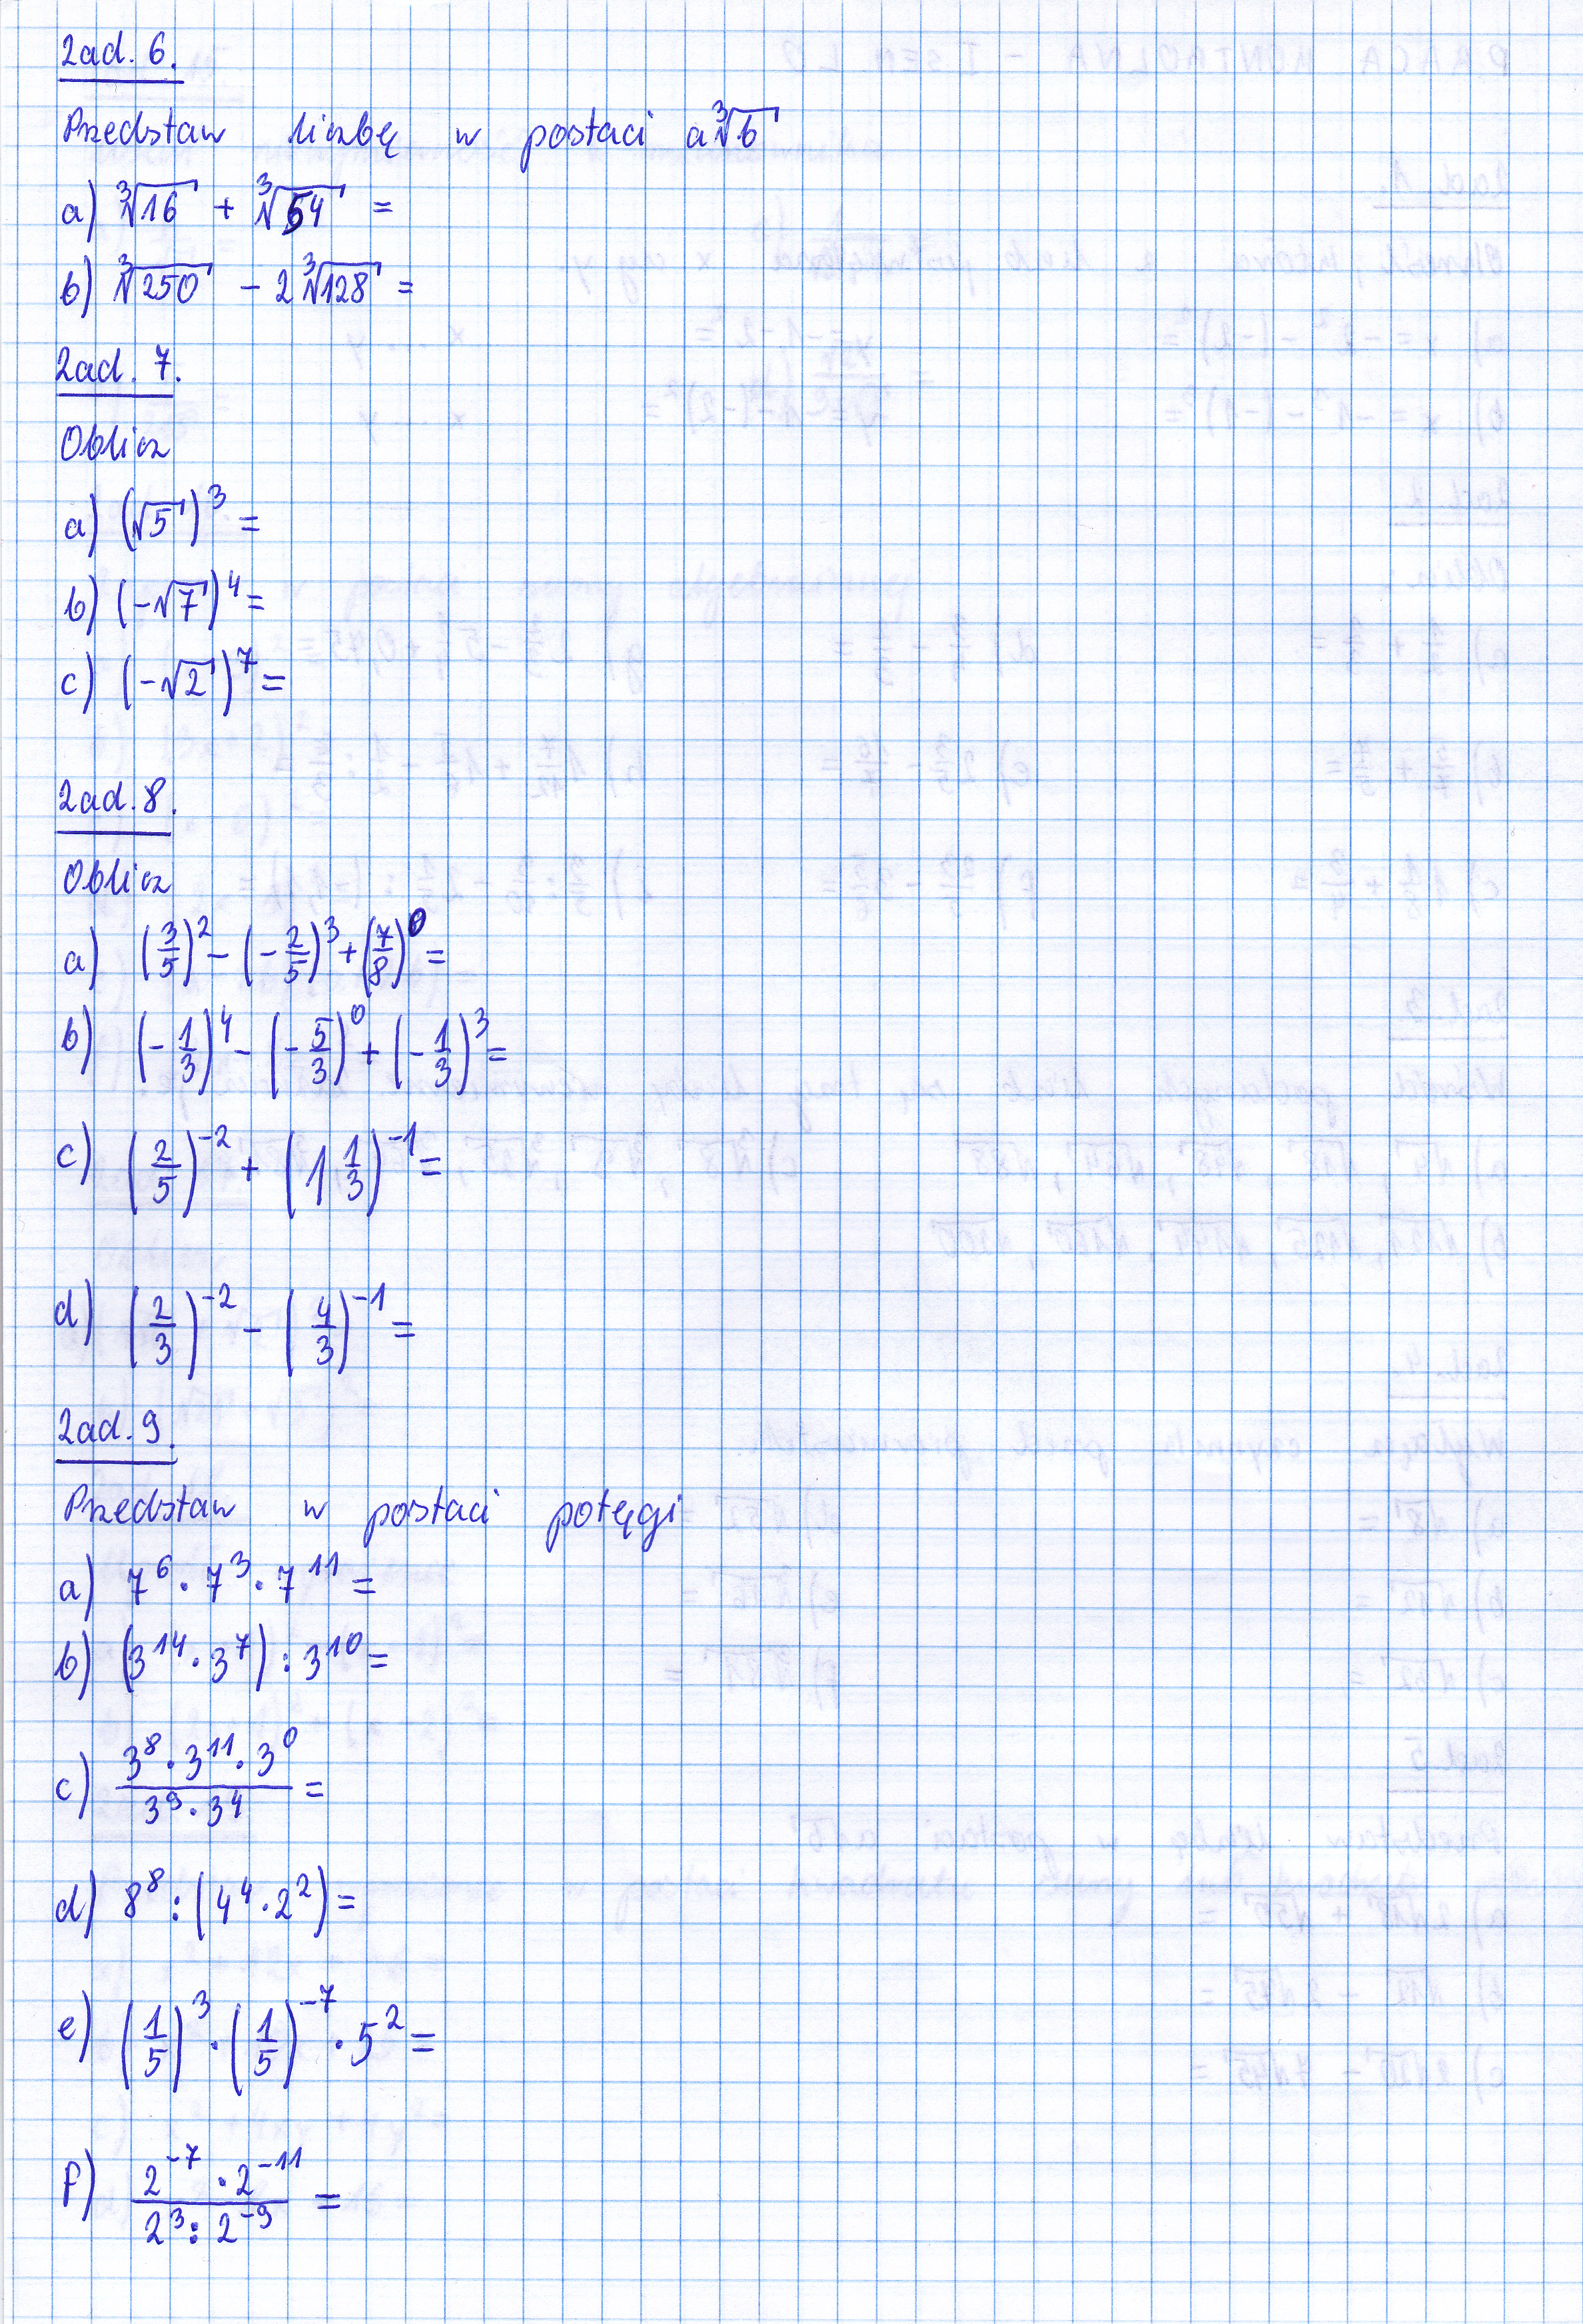 Zad. 6.
Przedstaw liczbę w postaci a∛b
a) ∛16 + ∛54 =
b) ∛250 - 2∛128 =
Zad. 7.
Oblicz
a) (√5)³ =
b) (-√7)⁴ =
c) (-√2)⁷ =
Zad. 8.
Oblicz
a) (3/5)² - (-2/5)³ + (7/8)⁰ =
b) (-1/3)⁴ - (-5/3)⁰ + (-1/3)³ =
c) (2/5)⁻² + (1 1/3)⁻¹ =
d) (2/3)⁻² - (4/3)⁻¹ =
Zad. 9.
Przedstaw w postaci potęgi
a) 7⁶ · 7³ · 7¹¹ =
b) (3¹⁴ · 3⁷) : 3¹⁰ =
c) (3⁸ · 3¹¹ · 3⁰)/(3⁹ · 3⁴) =
d) 8⁸ : (4⁴ · 2²) =
e) (1/5)³ · (1/5)⁻⁷ · 5² =
f) (2⁻⁷ · 2⁻¹¹)/(2³ : 2⁻⁹) =